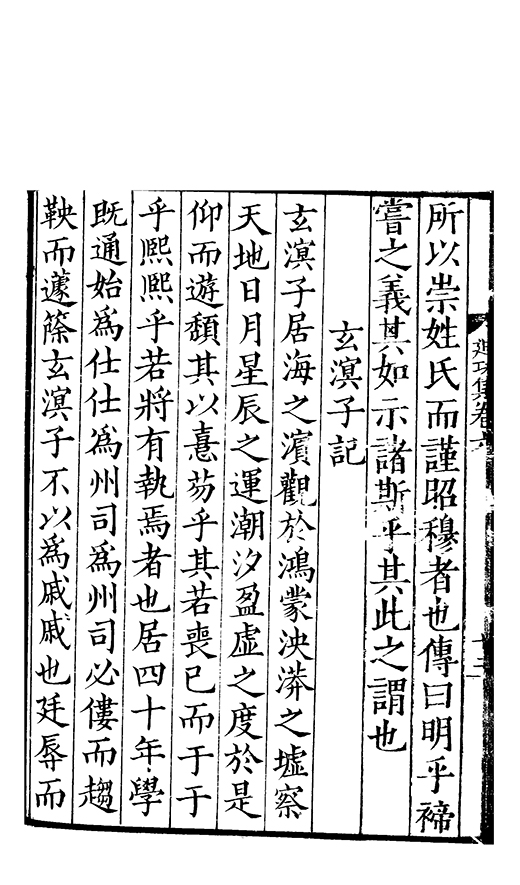 所以崇姓氏而謹昭穆者也傳曰明乎禘
嘗之義其如示諸斯乎其此之謂也
玄溟子記
玄溟子居海之濵觀於鴻蒙泱漭之墟察
天地日月星辰之運潮汐盈虛之度於是
仰而遊頽其以憙芴乎其若喪已而于于
乎熙熙乎若將有執焉者也居四十年學
既通始爲仕仕爲州司爲州司必僂而趨
鞅而蘧篨玄溟子不以爲戚戚也廷辱而